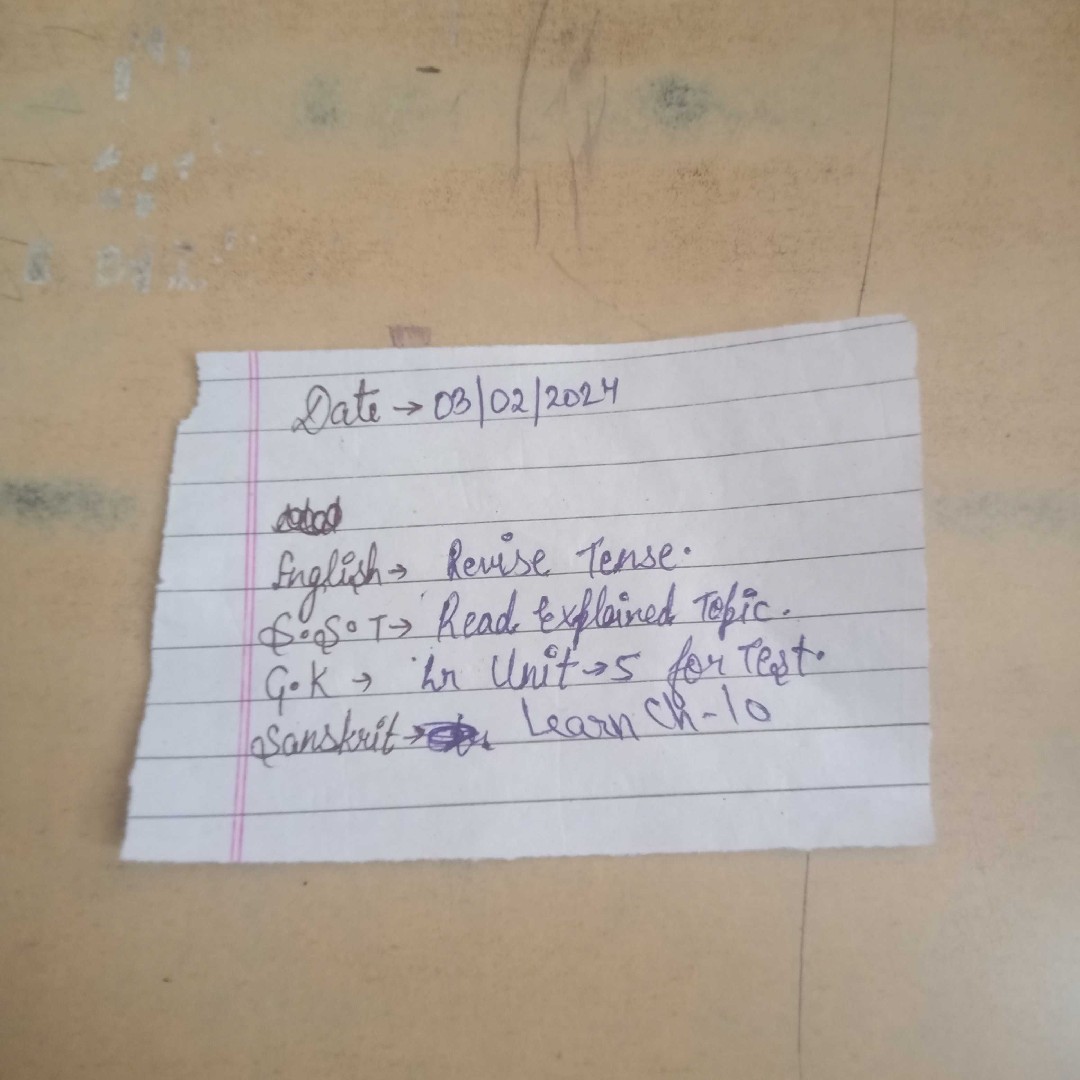 Date → 03/02/2024
English → Revise Tense.
S.S.T → Read Explained Topic.
G.K → Lr Unit → 5 for Test.
Sanskrit → Learn Ch-10